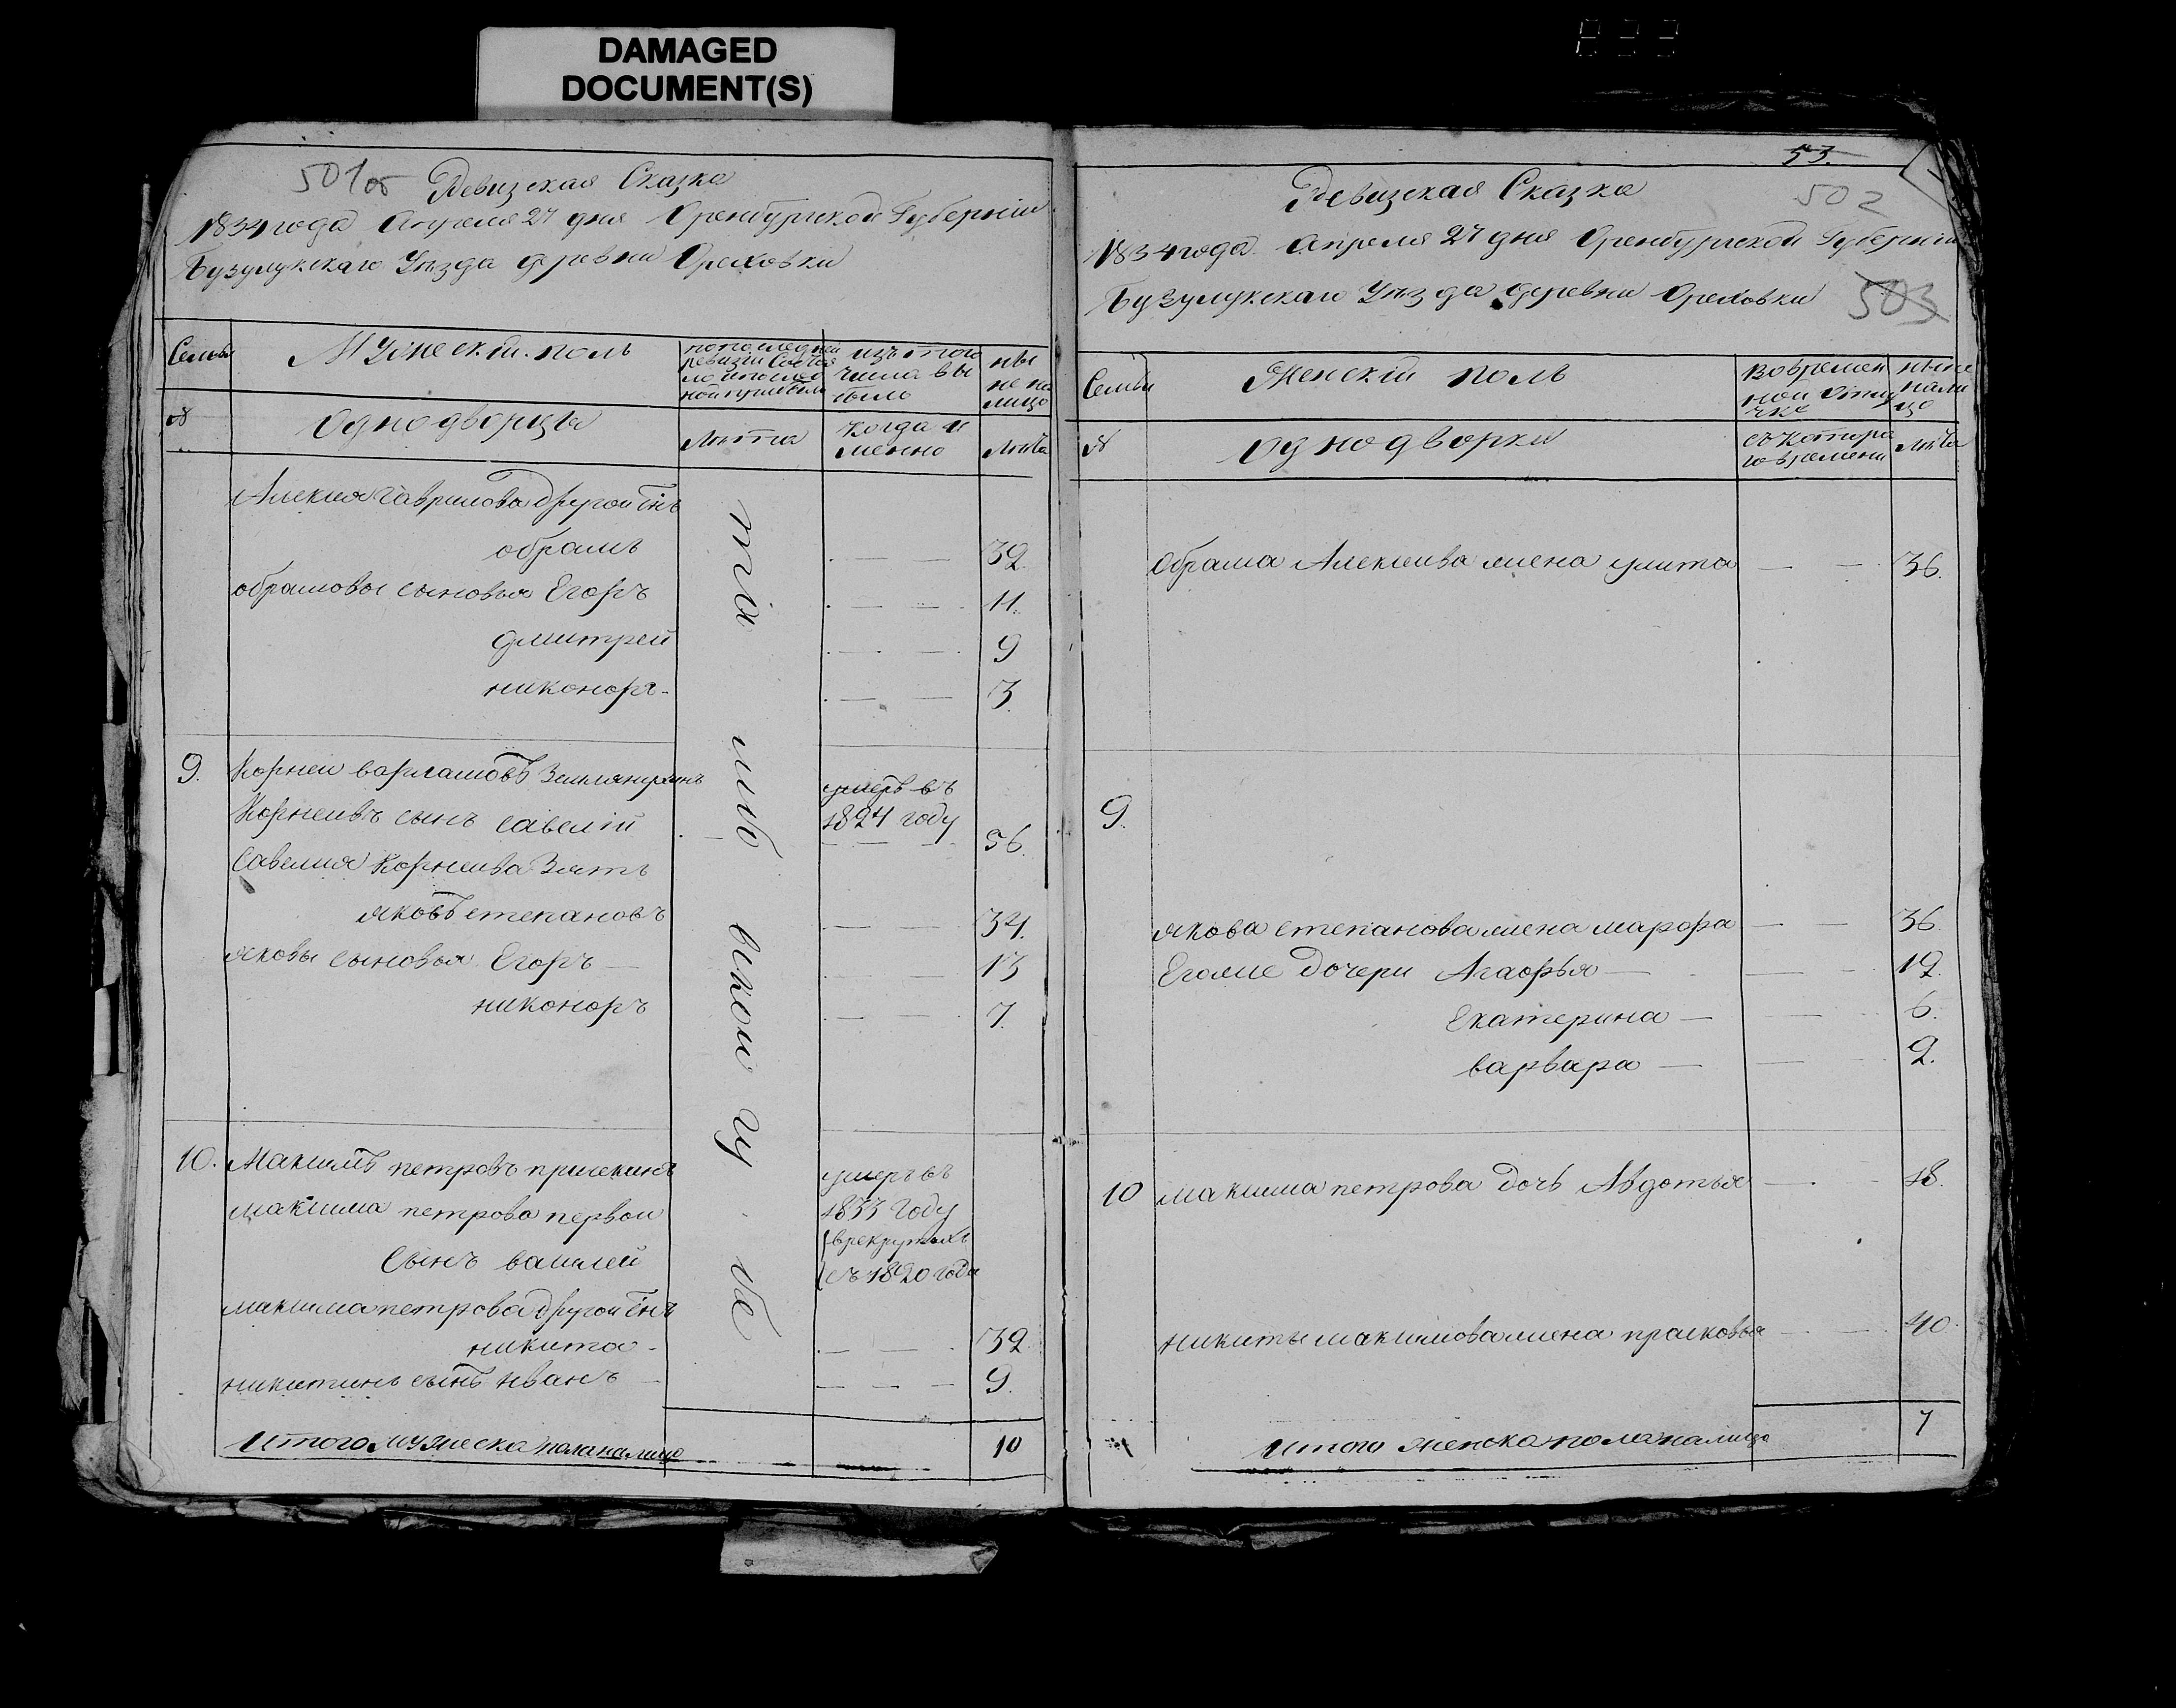 DAMAGED
DOCUMENT(S)
501об
Ревизская Сказка
1834 года Апреля 27 дня Оренбургской Губернiи
Бузулукскаго Уѣзда деревни Ореховки
Семьи
Мужескiй полъ
по последней ревизiи состоя
изъ того числа выбыло
ныне на лицо
№
Однодворцы
Лѣта
когда именно
Лѣта
Алексея Гаврилова другой сiнъ
обрамъ 32.
обрамовы сыновья Егоръ 11.
дмитрей 9
никоноръ 3.
9. Корней варламовъ
умеръ въ 1824 году
Корнеивъ сынъ савелiй 56.
савелия Корнеива Зять
яковъ степановъ 34.
яковы сыновья Егоръ 13
никоноръ 7.
10. Максимъ петровъ
умеръ въ 1833 году
максима петрова первой
сынъ василей
в рекрутахъ съ 1820 года
максима петрова другой сiнъ
никита 32
никитинъ сынъ иванъ 9.
Итого мужеска пола на лицо 10
53.
502
503
Ревизская Сказка
1834 года Апреля 27 дня Оренбургской Губернiи
Бузулукскаго Уѣзда деревни Ореховки
Семьи
Женскiй полъ
во времен ной отлучке
ныне налицо
№
однодворки
съ котора го времени
Лѣта
Обрама Алексеива жена улита 36.
9.
якова степанова жена марфа 36
Егоже дочери Агафья 12.
екатерина 6.
варвара 2.
10 максима петрова дочь Авдотья 18.
никиты максимова жена прасковья 40.
Итого женска пола налицо 7